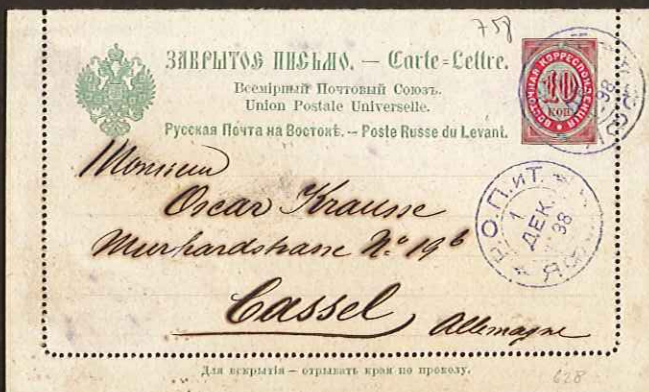 758
ЗАКРЫТОЕ ПИСЬМО. — Carte=Lettre.
Всемірный Почтовый Союзъ.
Union Postale Universelle.
Русская Почта на Востокѣ. — Poste Russe du Levant.
ВОСТОЧНАЯ КОРРЕСПОНДЕНЦІЯ
10
КОП
98
Monsieur
Oscar Krausse
Murhardstrasse No 19b
Cassel
Allemagne
Р.О.П.иТ.
1
ДЕК.
98
Для вскрытія – отрывать края по проколу.
628